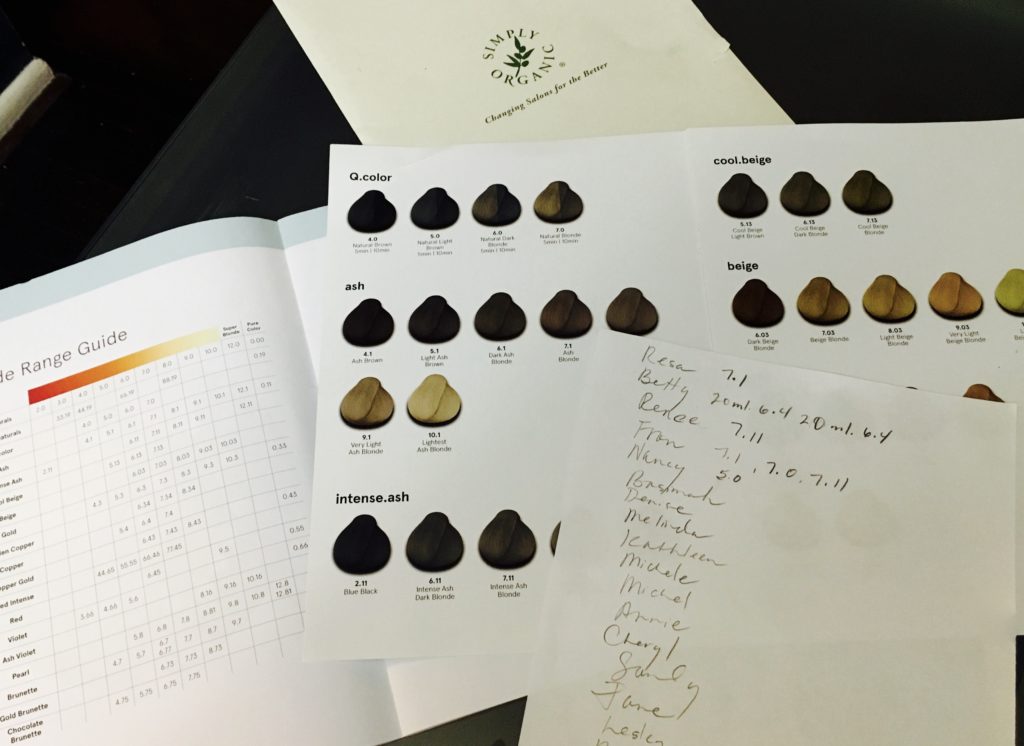 SIMPLY ORGANIC®
Changing Salons for the Better
Q.color
4.0 5.0 6.0 7.0
Natural Brown Natural Light Natural Dark Natural Blonde
5min | 10min Brown Blonde 5min | 10min
5min | 10min 5min | 10min
ash
4.1 5.1 6.1 7.1
Ash Brown Light Ash Dark Ash Ash
Brown Blonde Blonde
9.1 10.1
Very Light Lightest
Ash Blonde Ash Blonde
intense.ash
2.11 6.11 7.11
Blue Black Intense Ash Intense Ash
Dark Blonde Blonde
cool.beige
5.13 6.13 7.13
Cool Beige Cool Beige Cool Beige
Light Brown Dark Blonde Blonde
beige
6.03 7.03 8.03 9.03
Dark Beige Beige Blonde Light Beige Very Light
Blonde Blonde Beige Blonde
Range Guide
Super Blonde Pure Color
2.0 3.0 4.0 5.0 6.0 7.0 8.0 9.0 10.0 12.0 0.00
33.19 44.19 66.19 88.19 0.19
4.0 5.0 6.0 7.0
4.1 5.1 6.1 7.1 8.1 9.1 10.1 12.1 0.11
Ash 2.11 6.11 7.11 8.11 9.11 12.11
Ash 5.13 6.13 7.13
Beige 6.03 7.03 8.03 9.03 10.03
Beige 4.3 5.3 6.3 7.3 8.3 9.3 10.3 0.33
Gold 6.34 7.34 8.34
Copper 5.4 6.4 7.4 0.43
Copper 6.43 7.43 8.43
Gold 44.65 55.55 66.46 77.45 0.55
Intense 6.45 9.5 0.66
Red 3.66 4.66 5.6
Violet 8.16 9.16 10.16 12.8
Ash Violet 5.8 6.8 7.8 8.81 9.8 10.8 12.81
Pearl 4.7 5.7 6.7 7.7 8.7 9.7
Brunette 6.77
Gold Brunette 6.73 7.73 8.73
Chocolate Brunette 4.75 5.75 6.75 7.75
Resa 7.1
Betty 20ml. 6.4 20ml. 6.4
Renee 7.11
Fran 7.1, 7.0, 7.11
Nancy 5.0
Basimah
Denise
Melinda
Kathleen
Michele
Michel
Annie
Cheryl
Sandy
Jane
Lesley